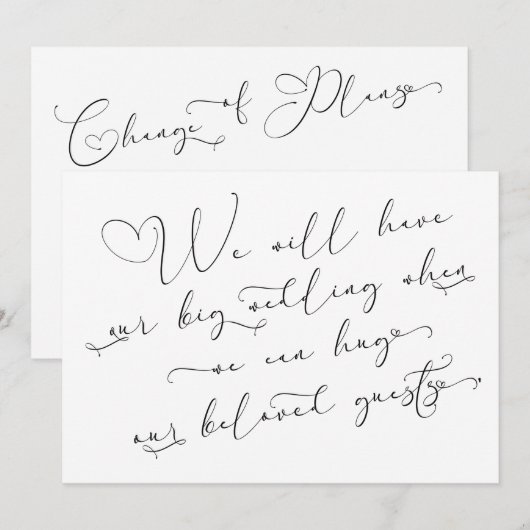 Change of Plans
We will have
our big wedding when
we can hug
our beloved guests.